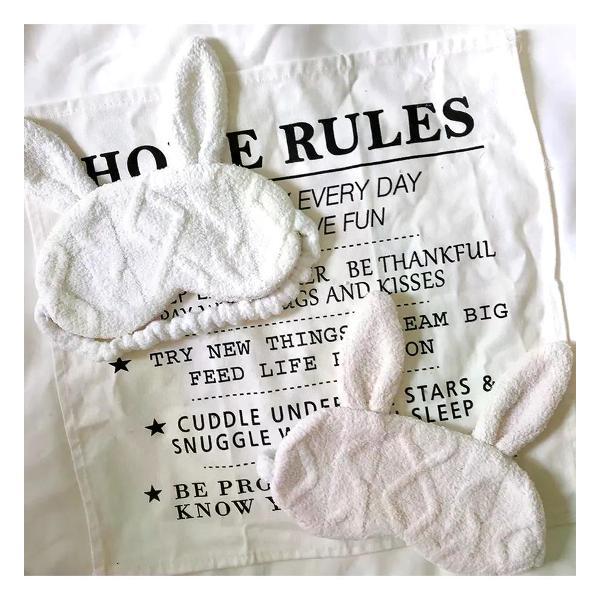 HO E RULES
EVERY DAY
VE FUN
BE THANKFUL
GS AND KISSES
★ TRY NEW THINGS EAM BIG
FEED LIFE ON
★ CUDDLE UNDE STARS &
SNUGGLE SLEEP
★ BE PRO
KNOW